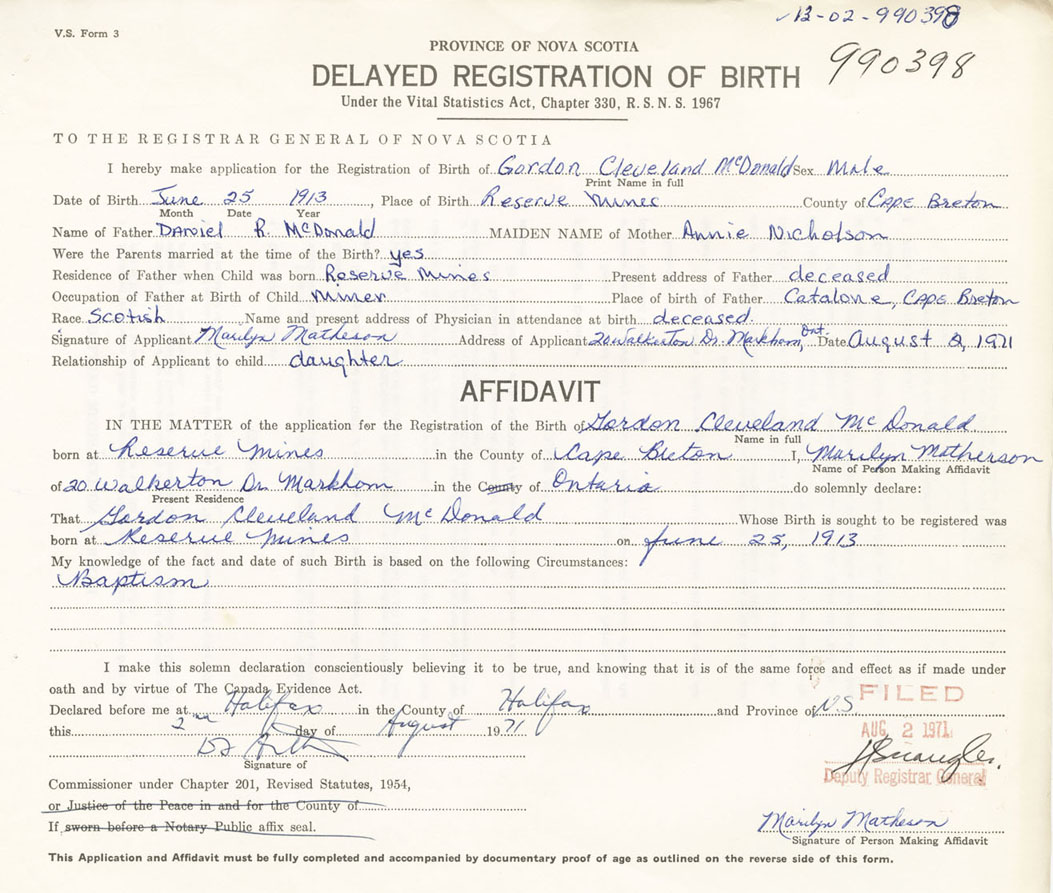 ✓ 13-02-990398
V.S. Form 3
990398
PROVINCE OF NOVA SCOTIA
DELAYED REGISTRATION OF BIRTH
Under the Vital Statistics Act, Chapter 330, R. S. N. S. 1967
TO THE REGISTRAR GENERAL OF NOVA SCOTIA
I hereby make application for the Registration of Birth of Gordon Cleveland McDonald Sex Male
Print Name in full
Date of Birth June 25 1913, Place of Birth Reserve Mines County of Cape Breton
Month Date Year
Name of Father Daniel R. McDonald MAIDEN NAME of Mother Annie Nicholson
Were the Parents married at the time of the Birth? yes
Residence of Father when Child was born Reserve Mines Present address of Father deceased
Occupation of Father at Birth of Child Miner Place of birth of Father Catalone, Cape Breton
Race Scotish Name and present address of Physician in attendance at birth deceased.
Signature of Applicant Marilyn Matheson Address of Applicant 20 Walkerton Dr. Markham, Ont. Date August 2, 1971
Relationship of Applicant to child daughter
AFFIDAVIT
IN THE MATTER of the application for the Registration of the Birth of Gordon Cleveland McDonald
Name in full
born at Reserve Mines in the County of Cape Breton I, Marilyn Matherson
Name of Person Making Affidavit
of 20 Walkerton Dr. Markhom in the County of Ontario do solemnly declare:
Present Residence
That Gordon Cleveland McDonald Whose Birth is sought to be registered was
born at Reserve Mines on June 25, 1913
My knowledge of the fact and date of such Birth is based on the following Circumstances:
Baptism
I make this solemn declaration conscientiously believing it to be true, and knowing that it is of the same force and effect as if made under
oath and by virtue of The Canada Evidence Act.
Declared before me at Halifax in the County of Halifax and Province of N.S.
FILED
this 2nd day of August 1971
AUG 2 1971
Signature of
Deputy Registrar General
Commissioner under Chapter 201, Revised Statutes, 1954,
or Justice of the Peace in and for the County of
If sworn before a Notary Public affix seal.
Marilyn Matheson
Signature of Person Making Affidavit
This Application and Affidavit must be fully completed and accompanied by documentary proof of age as outlined on the reverse side of this form.